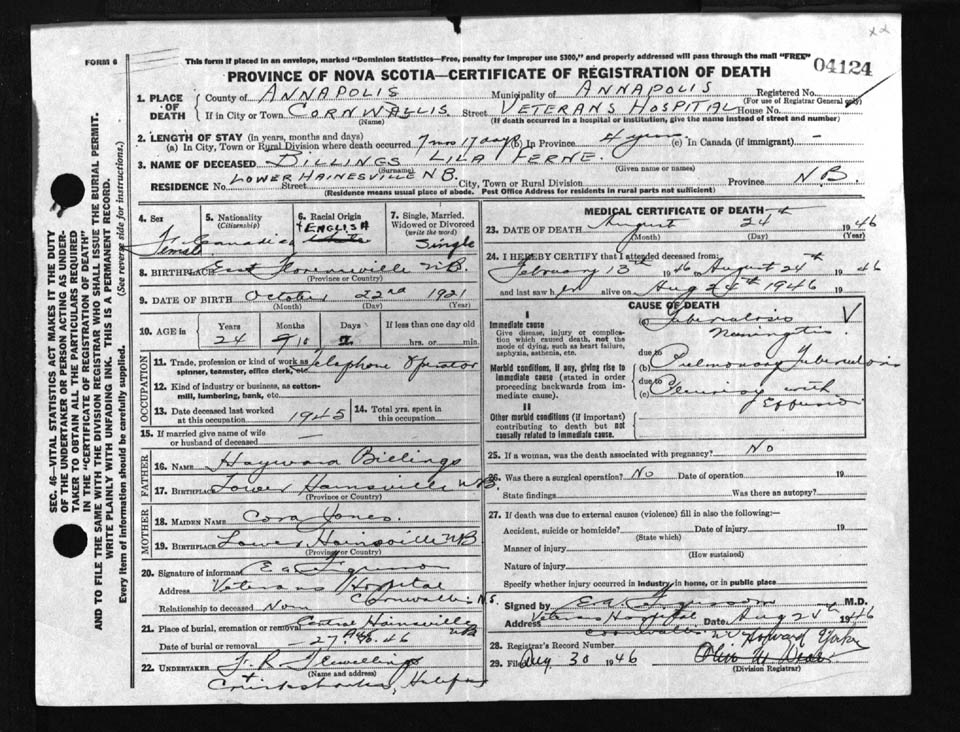 FORM 6
This form if placed in an envelope, marked "Dominion Statistics—Free, penalty for improper use $300," and properly addressed will pass through the mail "FREE"
04124
PROVINCE OF NOVA SCOTIA—CERTIFICATE OF REGISTRATION OF DEATH
1. PLACE OF DEATH
County of ANNAPOLIS Municipality of ANNAPOLIS Registered No.
(For use of Registrar General only)
If in City or Town CORNWALLIS Street VETERANS HOSPITAL House No.
(Name) (If death occurred in a hospital or institution, give the name instead of street and number)
2. LENGTH OF STAY (in years, months and days)
(a) In City, Town or Rural Division where death occurred 7 mos 17 days (b) In Province 4 years (c) In Canada (if immigrant) —
3. NAME OF DECEASED BILLINGS LILA FERNE.
(Surname) (Given name or names)
RESIDENCE No. LOWER HAINESVILLE N B. Street City, Town or Rural Division Province N.B.
(Residence means usual place of abode. Post Office Address for residents in rural parts not sufficient)
SEC. 46—VITAL STATISTICS ACT MAKES IT THE DUTY
OF THE UNDERTAKER OR PERSON ACTING AS UNDER-
TAKER TO OBTAIN ALL THE PARTICULARS REQUIRED
IN THE "CERTIFICATE OF REGISTRATION OF DEATH"
AND TO FILE THE SAME WITH THE DIVISION REGISTRAR WHO SHALL ISSUE THE BURIAL PERMIT.
WRITE PLAINLY WITH UNFADING INK. THIS IS A PERMANENT RECORD.
Every item of information should be carefully supplied. (See reverse side for instructions.)
4. Sex
Female
5. Nationality
(Citizenship)
Canadian
6. Racial Origin
ENGLISH
7. Single, Married,
Widowed or Divorced
(write the word)
Single
8. BIRTHPLACE East Florenceville N.B.
(Province or Country)
9. DATE OF BIRTH October 22nd 1921
(Month) (Day) (Year)
10. AGE in
Years Months Days If less than one day old
24 10 2 hrs. or min.
OCCUPATION
11. Trade, profession or kind of work as
spinner, teamster, office clerk, etc. Telephone Operator
12. Kind of industry or business, as cotton-
mill, lumbering, bank, etc.
13. Date deceased last worked
at this occupation 1945
14. Total yrs. spent in
this occupation
15. If married give name of wife
or husband of deceased —
FATHER
16. NAME Hayward Billings
17. BIRTHPLACE Lower Hainsville N.B.
(Province or Country)
MOTHER
18. MAIDEN NAME Cora Jones.
19. BIRTHPLACE Lower Hainsville NB
(Province or Country)
20. Signature of informant
Address Veterans Hospital
Cornwallis N.S.
Relationship to deceased None
21. Place of burial, cremation or removal Central Hainsville NB
Date of burial or removal 27 Aug. 46
22. UNDERTAKER F. R. Flewelling
(Name and address)
+ Cruikshanks, Halifax
MEDICAL CERTIFICATE OF DEATH
23. DATE OF DEATH August 24th 1946
(Month) (Day) (Year)
24. I HEREBY CERTIFY that I attended deceased from:
February 13th 1946 to August 24th 1946
and last saw her alive on Aug 24th 1946 19
CAUSE OF DEATH
I
Immediate cause
Give disease, injury or complica-
tion which caused death, not the
mode of dying, such as heart failure,
asphyxia, asthenia, etc.
(a) Tuberculosis
Meningitis
due to
Morbid conditions, if any, giving rise to
immediate cause (stated in order
proceeding backwards from im-
mediate cause).
(b) Pulmonary Tuberculosis
due to
(c) Pleurisy with
Effusion
II
Other morbid conditions (if important)
contributing to death but not
causally related to immediate cause.
25. If a woman, was the death associated with pregnancy? No
26. Was there a surgical operation? No Date of operation 19
State findings Was there an autopsy?
27. If death was due to external causes (violence) fill in also the following:—
Accident, suicide or homicide? Date of injury 19
(State which)
Manner of injury
(How sustained)
Nature of injury
Specify whether injury occurred in industry, in home, or in public place
Signed by M.D.
Address Veterans Hospital Date Aug 25th 1946
Cornwallis
28. Registrar's Record Number
29. Filed Aug 30 1946
(Division Registrar)